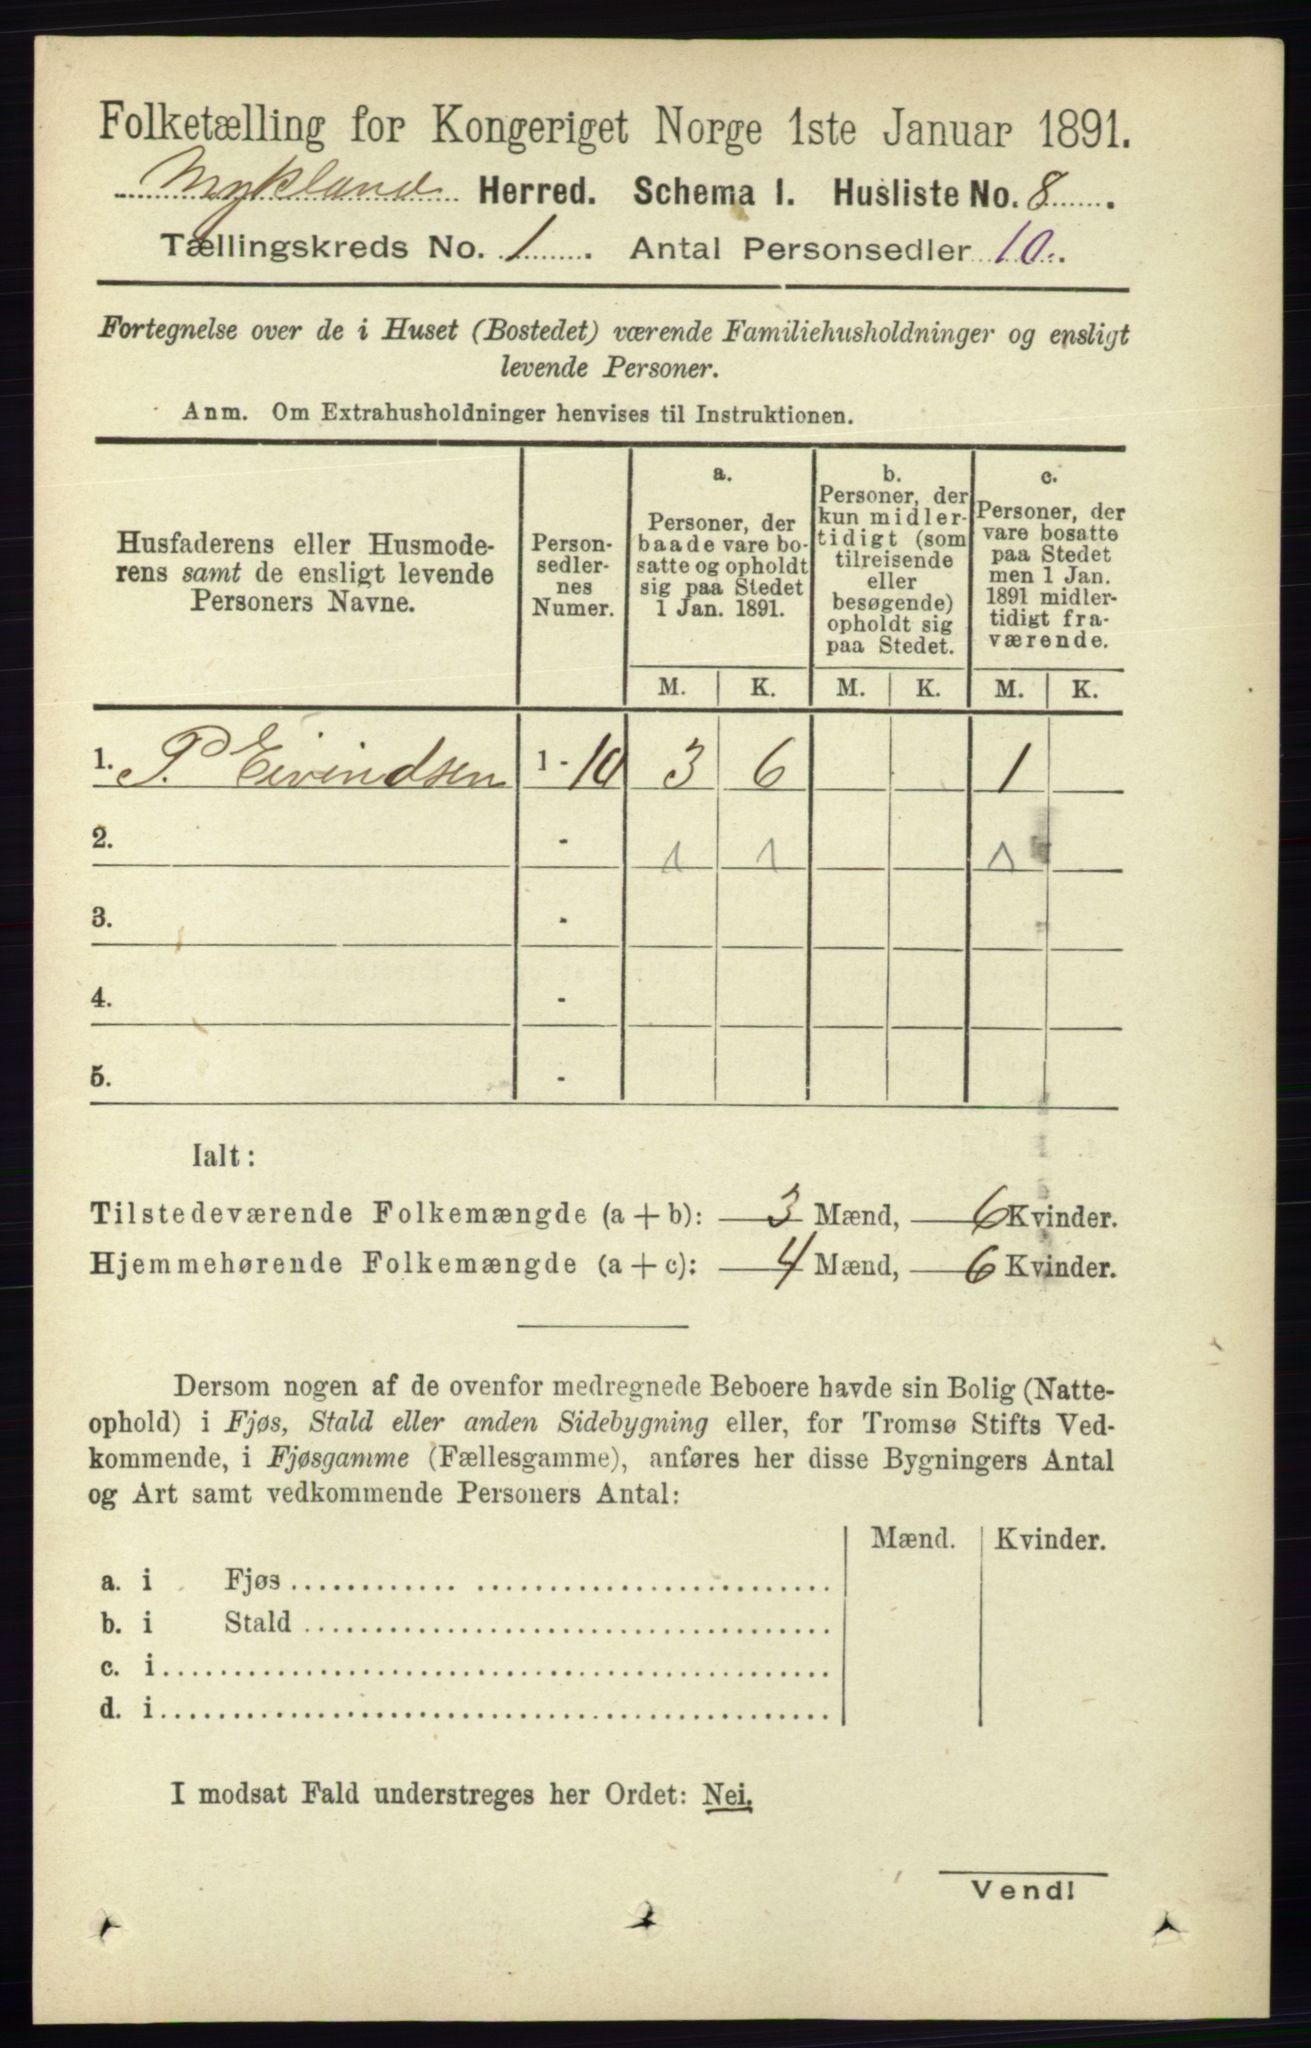 Folketælling for Kongeriget Norge 1ste Januar 1891.
Mykland Herred. Schema I. Husliste No. 8.
Tællingskreds No. 1. Antal Personsedler 10.
Fortegnelse over de i Huset (Bostedet) værende Familiehusholdninger og ensligt
levende Personer.
Anm. Om Extrahusholdninger henvises til Instruktionen.
Husfaderens eller Husmode-
rens samt de ensligt levende
Personers Navne.
Person-
sedler-
nes
Numer.
a.
Personer, der
baade vare bo-
satte og opholdt
sig paa Stedet
1 Jan. 1891.
b.
Personer, der
kun midler-
tidigt (som
tilreisende
eller
besøgende)
opholdt sig
paa Stedet.
c.
Personer, der
vare bosatte
paa Stedet
men 1 Jan.
1891 midler-
tidigt fra-
værende.
M. K. M. K. M. K.
1. P. Eivindsen 1 - 10 3 6 1
2. - 1 1 1
3. -
4. -
5. -
Ialt:
Tilstedeværende Folkemængde (a + b): 3 Mænd, 6 Kvinder.
Hjemmehørende Folkemængde (a + c): 4 Mænd, 6 Kvinder.
Dersom nogen af de ovenfor medregnede Beboere havde sin Bolig (Natte-
ophold) i Fjøs, Stald eller anden Sidebygning eller, for Tromsø Stifts Ved-
kommende, i Fjøsgamme (Fællesgamme), anføres her disse Bygningers Antal
og Art samt vedkommende Personers Antal:
Mænd. Kvinder.
a. i Fjøs
b. i Stald
c. i
d. i
I modsat Fald understreges her Ordet: Nei.
Vend!